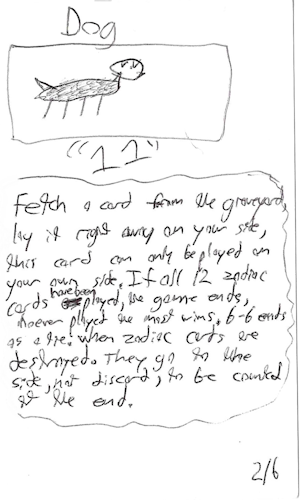 Dog
"11"
Fetch a card from the graveyard,
lay it right away on your side,
this card can only be played on
your own side. If all 12 zodiac
cards have been played, the game ends,
whoever played the most wins. 6-6 ends
as a tie. when zodiac cards are
destroyed. They go to the
side, not discard, to be counted
at the end.
2/6